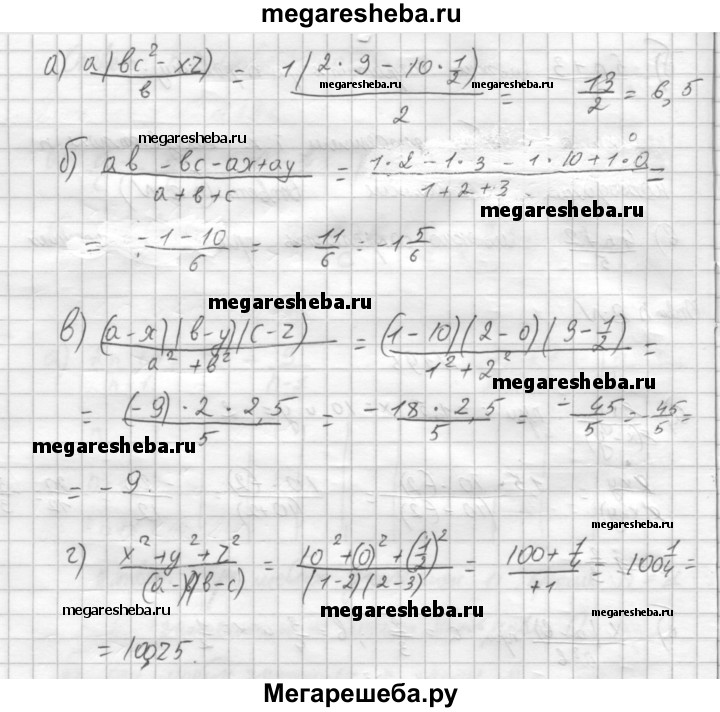 megaresheba.ru
а) a(bc² - xz)/b = 1(2·9 - 10·1/2)/2 = 13/2 = 6,5
megaresheba.ru megaresheba.ru
megaresheba.ru
б) (ab - bc - ax + ay)/(a + b + c) = (1·2 - 1·3 - 1·10 + 1·0)/(1 + 2 + 3) =
megaresheba.ru
= (-1 - 10)/6 = -11/6 = -1 5/6
megaresheba.ru
в) (a - x)(b - y)(c - z)/(a² + b²) = (1 - 10)(2 - 0)(3 - 1/2)/(1² + 2²) =
megaresheba.ru
= (-9)·2·2,5/5 = -18·2,5/5 = -45/5 = -45/5 =
megaresheba.ru
= -9.
г) (x² + y² + z²)/((a - b)(b - c)) = (10² + (0)² + (1/2)²)/((1 - 2)(2 - 3)) = (100 + 1/4)/+1 = 100 1/4 =
megaresheba.ru megaresheba.ru megaresheba.ru
= 100,25.
Мегарешеба.ру